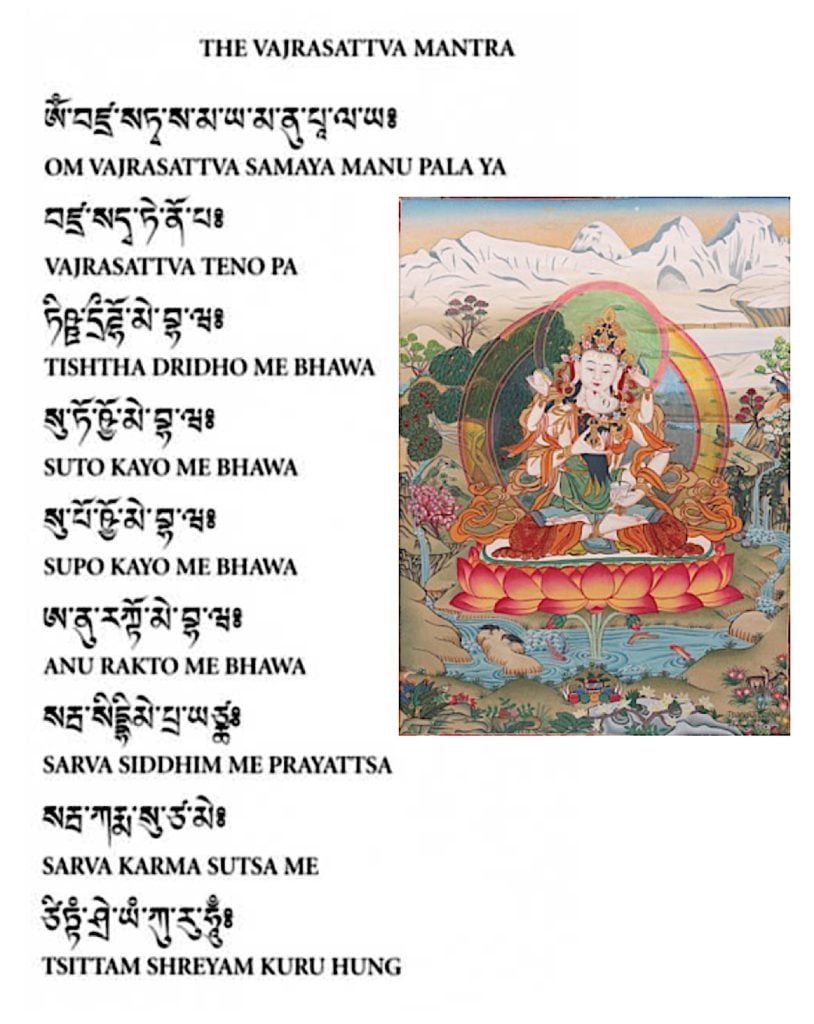 THE VAJRASATTVA MANTRA
ༀ་བཛྲ་སཏྭ་ས་མ་ཡ་མ་ནུ་པཱ་ལ་ཡ༔
OM VAJRASATTVA SAMAYA MANU PALA YA
བཛྲ་སཏྭ་ཏེ་ནོ་པ༔
VAJRASATTVA TENO PA
ཏིཥྛ་དྲྀ་ཌྷོ་མེ་བྷ་ཝ༔
TISHTHA DRIDHO ME BHAWA
སུ་ཏོ་ཥྱོ་མེ་བྷ་ཝ༔
SUTO KAYO ME BHAWA
སུ་པོ་ཥྱོ་མེ་བྷ་ཝ༔
SUPO KAYO ME BHAWA
ཨ་ནུ་རཀྟོ་མེ་བྷ་ཝ༔
ANU RAKTO ME BHAWA
སརྦ་སིདྡྷི་མེ་པྲ་ཡཙྪ༔
SARVA SIDDHIM ME PRAYATTSA
སརྦ་ཀརྨ་སུ་ཙ་མེ༔
SARVA KARMA SUTSA ME
ཙིཏྟཾ་ཤྲེ་ཡཾ་ཀུ་རུ་ཧཱུྃ༔
TSITTAM SHREYAM KURU HUNG